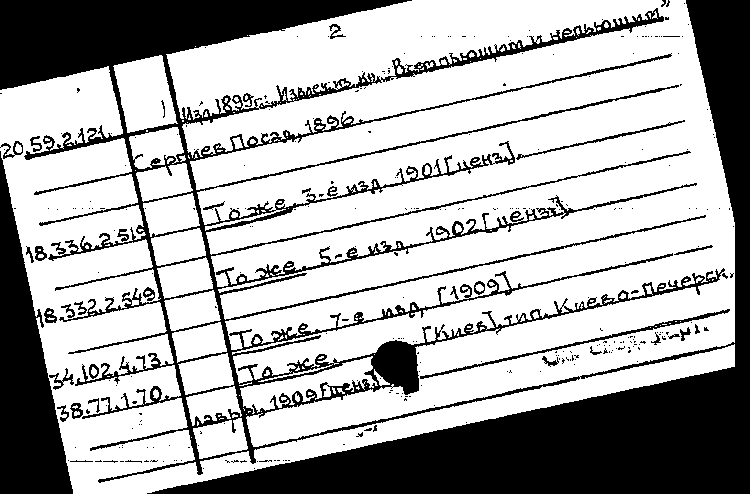 2
20.59.2.121. Изд. 1899г.: Извлеч. из кн. Всем пьющим и непьющим".
Сергиев Посад, 1896.
18.336.2.519. То же. 3-е изд. 1901 [ценз.].
18.332.2.549. То же. 5-е изд. 1902 [ценз.].
34.102.4.73. То же. 7-е изд. [1909].
38.77.1.70. То же. [Киев], тип. Киево-Печерск.
лавры, 1909 [ценз.]